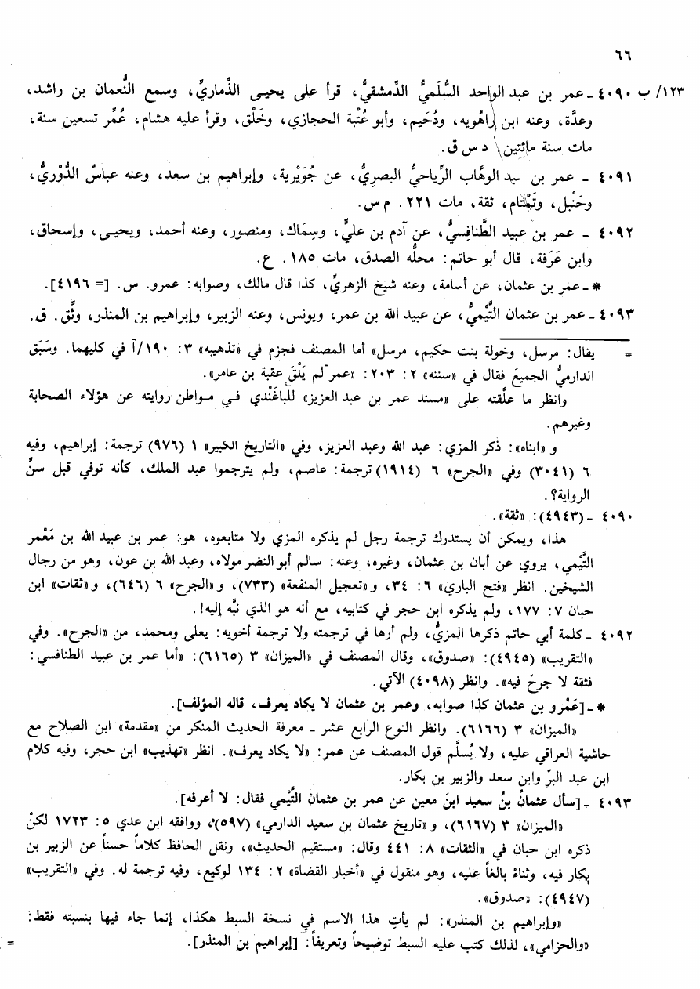 ٦٦
١٢٣/ ب ٤٠٩٠ ـ عمر بن عبد الواحد السُّلَميُّ الدِّمشقيُّ، قرأ على يحيى الذَّماريِّ، وسمع النُّعمان بن راشد،
وعدَّة، وعنه ابن راهُويه، ودُحَيم، وأبو عُتْبة الحجازي، وخَلْق، وقرأ عليه هشام، عُمِّر تسعين سنة،
مات سنة مائتين. د س ق.
٤٠٩١ ـ عمر بن عبد الوهَّاب الرِّياحيُّ البصريُّ، عن جُوَيْرية، وإبراهيم بن سعد، وعنه عباسٌ الدُّوْريُّ،
وحَنْبل، وتَمْتَام، ثقة، مات ٢٢١. م س.
٤٠٩٢ ـ عمر بن عبيد الطَّنَافِسيُّ، عن آدم بن عليٍّ، وسِمَاك، ومنصور، وعنه أحمد، ويحيى، وإسحاق،
وابن عَرَفة، قال أبو حاتم: محلُّه الصدق، مات ١٨٥. ع.
* ـ عمر بن عثمان، عن أسامة، وعنه شيخ الزهريِّ، كذا قال مالك، وصوابه: عمرو. س. [= ٤١٩٦].
٤٠٩٣ ـ عمر بن عثمان التَّيْميُّ، عن عبيد الله بن عمر، ويونس، وعنه الزبير، وإبراهيم بن المنذر، وثِّق. ق.
= يقال: مرسل، وخولة بنت حكيم، مرسل» أما المصنف فجزم في «تذهيبه» ٣: ١٩٠/آ في كليهما. وسَبَق
الدارميُّ الجميعَ فقال في «سننه» ٢: ٢٠٣: «عمر لم يَلْقَ عقبة بن عامر».
وانظر ما علَّقته على «مسند عمر بن عبد العزيز» للباغَندي في مواطن روايته عن هؤلاء الصحابة
وغيرهم.
و «ابناه»: ذكر المزي: عبد الله وعبد العزيز، وفي «التاريخ الكبير» ١ (٩٧٦) ترجمة: إبراهيم، وفيه
٦ (٣٠٤١) وفي «الجرح» ٦ (١٩١٤) ترجمة: عاصم، ولم يترجموا عبد الملك، كأنه توفي قبل سنِّ
الرواية؟.
٤٠٩٠ ـ (٤٩٤٣): «ثقة».
هذا، ويمكن أن يستدرك ترجمة رجل لم يذكره المزي ولا متابعوه، هو: عمر بن عبيد الله بن مَعْمر
التَّيْمي، يروي عن أبان بن عثمان، وغيره، وعنه: سالم أبو النضر مولاه، وعبد الله بن عون، وهو من رجال
الشيخين. انظر «فتح الباري» ٦: ٣٤، و «تعجيل المنفعة» (٧٣٣)، و «الجرح» ٦ (٦٤٦)، و «ثقات» ابن
حبان ٧: ١٧٧، ولم يذكره ابن حجر في كتابيه، مع أنه هو الذي نبَّه إليه!.
٤٠٩٢ ـ كلمة أبي حاتم ذكرها المزيُّ، ولم أرها في ترجمته ولا ترجمة أخويه: يعلى ومحمد، من «الجرح». وفي
«التقريب» (٤٩٤٥): «صدوق»، وقال المصنف في «الميزان» ٣ (٦١٦٥): «أما عمر بن عبيد الطنافسي:
فثقة لا جرحَ فيه». وانظر (٤٠٩٨) الآتي.
* ـ [عَمْرو بن عثمان كذا صوابه، وعمر بن عثمان لا يكاد يعرف، قاله المؤلف].
«الميزان» ٣ (٦١٦٦). وانظر النوع الرابع عشر ـ معرفة الحديث المنكر من «مقدمة» ابن الصلاح مع
حاشية العراقي عليه، ولا يُسلَّم قول المصنف عن عمر: «لا يكاد يعرف». انظر «تهذيب» ابن حجر، وفيه كلام
ابن عبد البرِّ وابن سعد والزبير بن بكار.
٤٠٩٣ ـ [سأل عثمانُ بنُ سعيد ابنَ معين عن عمر بن عثمان التَّيْمي فقال: لا أعرفه].
«الميزان» ٣ (٦١٦٧)، و «تاريخ عثمان بن سعيد الدارمي» (٥٩٧)، ووافقه ابن عدي ٥: ١٧٢٣ لكنْ
ذكره ابن حبان في «الثقات» ٨: ٤٤١ وقال: «مستقيم الحديث»، ونقل الحافظ كلاماً حسناً عن الزبير بن
بكار فيه، وثناءً بالغاً عليه، وهو منقول في «أخبار القضاة» ٢: ١٣٤ لوكيع، وفيه ترجمة له. وفي «التقريب»
(٤٩٤٧): «صدوق».
«وإبراهيم بن المنذر»: لم يأتِ هذا الاسم في نسخة السبط هكذا، إنما جاء فيها بنسبته فقط:
«والحزامي»، لذلك كتب عليه السبط توضيحاً وتعريفاً: [إبراهيم بن المنذر]. =